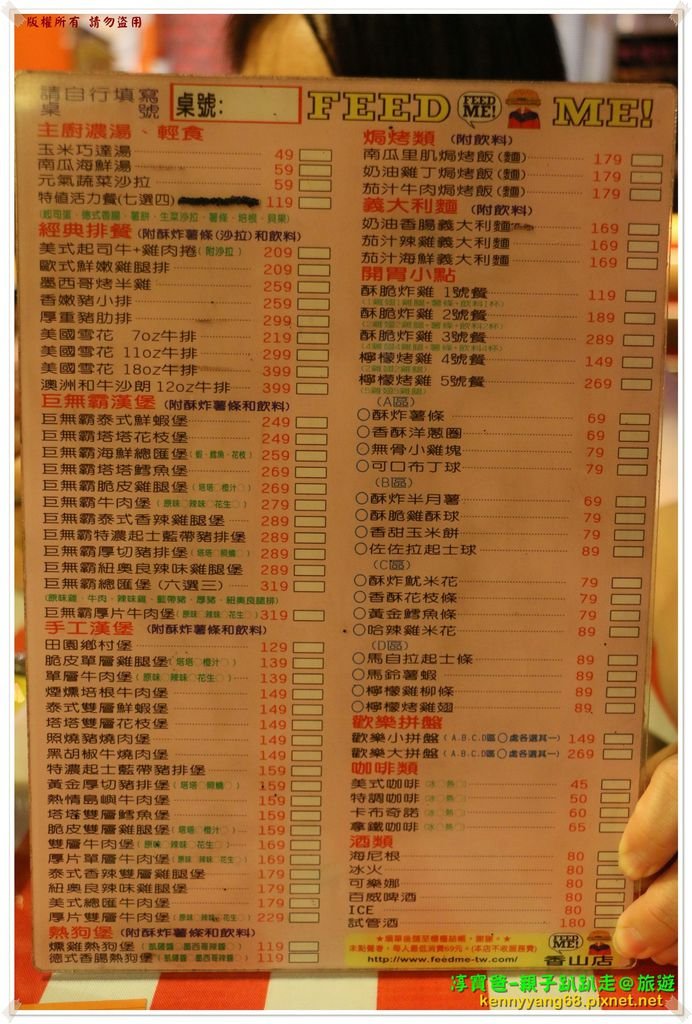 版權所有 請勿盜用
請自行填寫桌號
桌號：
FEED FEED ME! ME!
主廚濃湯、輕食
玉米巧達湯 49
南瓜海鮮湯 59
元氣蔬菜沙拉 59
特值活力餐(七選四) 119
(起司蛋、德式香腸、薯餅、生菜沙拉、薯條、培根、貝果)
經典排餐(附酥炸薯條(沙拉)和飲料)
美式起司牛+雞肉捲(附沙拉) 209
歐式鮮嫩雞腿排 209
墨西哥烤半雞 259
香嫩豬小排 259
厚重豬肋排 299
美國雪花 7oz牛排 219
美國雪花 11oz牛排 299
美國雪花 18oz牛排 399
澳洲和牛沙朗 12oz牛排 399
巨無霸漢堡(附酥炸薯條和飲料)
巨無霸泰式鮮蝦堡 249
巨無霸塔塔花枝堡 249
巨無霸海鮮總匯堡(蝦、鱈魚、花枝) 259
巨無霸塔塔鱈魚堡 269
巨無霸脆皮雞腿堡(塔塔○橙汁○) 269
巨無霸牛肉堡(原味○辣味○花生○) 279
巨無霸泰式香辣雞腿堡 289
巨無霸特濃起士藍帶豬排堡 289
巨無霸厚切豬排堡(塔塔○照燒○) 289
巨無霸紐奧良辣味雞腿堡 289
巨無霸總匯堡(六選三) 319
(原味雞、牛肉、辣味雞、藍帶豬、厚豬、紐奧良豬排)
巨無霸厚片牛肉堡(原味○辣味○花生○) 319
手工漢堡(附酥炸薯條和飲料)
田園鄉村堡 129
脆皮單層雞腿堡(塔塔○橙汁○) 139
單層牛肉堡(原味○辣味○花生○) 139
煙燻培根牛肉堡 149
泰式雙層鮮蝦堡 149
塔塔雙層花枝堡 149
照燒豬燒肉堡 149
黑胡椒牛燒肉堡 149
特濃起士藍帶豬排堡 159
黃金厚切豬排堡(塔塔○照燒○) 159
熱情島嶼牛肉堡 159
塔塔雙層鱈魚堡 159
脆皮雙層雞腿堡(塔塔○橙汁○) 159
雙層牛肉堡(原味○辣味○花生○) 169
厚片單層牛肉堡(原味○辣味○花生○) 169
泰式香辣雙層雞腿堡 179
紐奧良辣味雞腿堡 179
美式總匯牛肉堡 179
厚片雙層牛肉堡(原味○辣味○花生○) 229
熱狗堡(附酥炸薯條和飲料)
燻雞熱狗堡(凱薩醬○墨西哥辣醬○) 119
德式香腸熱狗堡(凱薩醬○墨西哥辣醬○) 119
焗烤類(附飲料)
南瓜里肌焗烤飯(麵) 179
奶油雞丁焗烤飯(麵) 179
茄汁牛肉焗烤飯(麵) 179
義大利麵(附飲料)
奶油香腸義大利麵 169
茄汁辣雞義大利麵 169
茄汁海鮮義大利麵 169
開胃小點
酥脆炸雞 1號餐 119
酥脆炸雞 2號餐 189
酥脆炸雞 3號餐 289
檸檬烤雞 4號餐 149
檸檬烤雞 5號餐 269
(A區)
○酥炸薯條 69
○香酥洋蔥圈 79
○無骨小雞塊 79
○可口布丁球 79
(B區)
○酥炸半月薯 69
○酥脆雞酥球 79
○香甜玉米餅 79
○佐佐拉起士球 89
(C區)
○酥炸魷米花 79
○香酥花枝條 79
○黃金鱈魚條 79
○哈辣雞米花 89
(D區)
○馬自拉起士條 89
○馬鈴薯蝦 89
○檸檬雞柳條 89
○檸檬烤雞翅 89
歡樂拼盤
歡樂小拼盤(A.B.C.D區○處各選其一) 149
歡樂大拼盤(A.B.C.D區○處各選其一) 269
咖啡類
美式咖啡(冰○熱○) 45
特調咖啡(冰○熱○) 50
卡布奇諾(冰○熱○) 60
拿鐵咖啡(冰○熱○) 65
酒類
海尼根 80
冰火 80
可樂娜 80
百威啤酒 80
ICE 80
試管酒 180
★選單後請至櫃檯結帳，謝謝。★
未點餐者，每人最低消費69元。(本店不收服務費)
http://www.feedme-tw.com/
FEED ME!
香山店
淳寶爸-親子趴趴走@旅遊
kennyyang68.pixnet.net